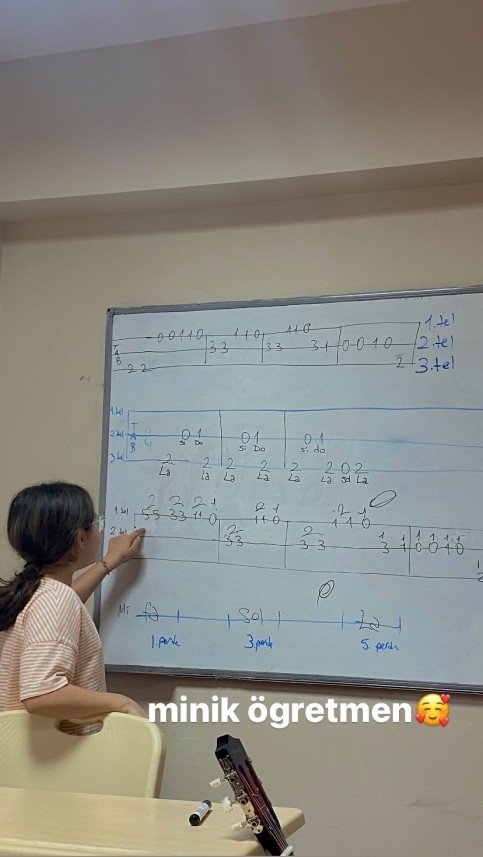 0 0 1 1 0 1 1 0 1 1 0 1.tel
T 3 3 3 3 3 1 0 0 1 0 2.tel
A
B 2 2 2 3.tel
1.tel
T
2.tel A 0 1 0 1 0 1
B si Do si Do si do
3.tel 2 2 2 2 2 2 0 2
La La La La La La sol La
2 2 2 1 2 1 2 1
1.tel 5 5 3 3 1 1 0 1 1 0 1 1 0
2 2 1 1 1 1 1
2.tel 3 3 3 3 3 1 0 0 1 0
Mi Fa Sol La
1.perde 3.perde 5.perde
minik ögretmen🥰